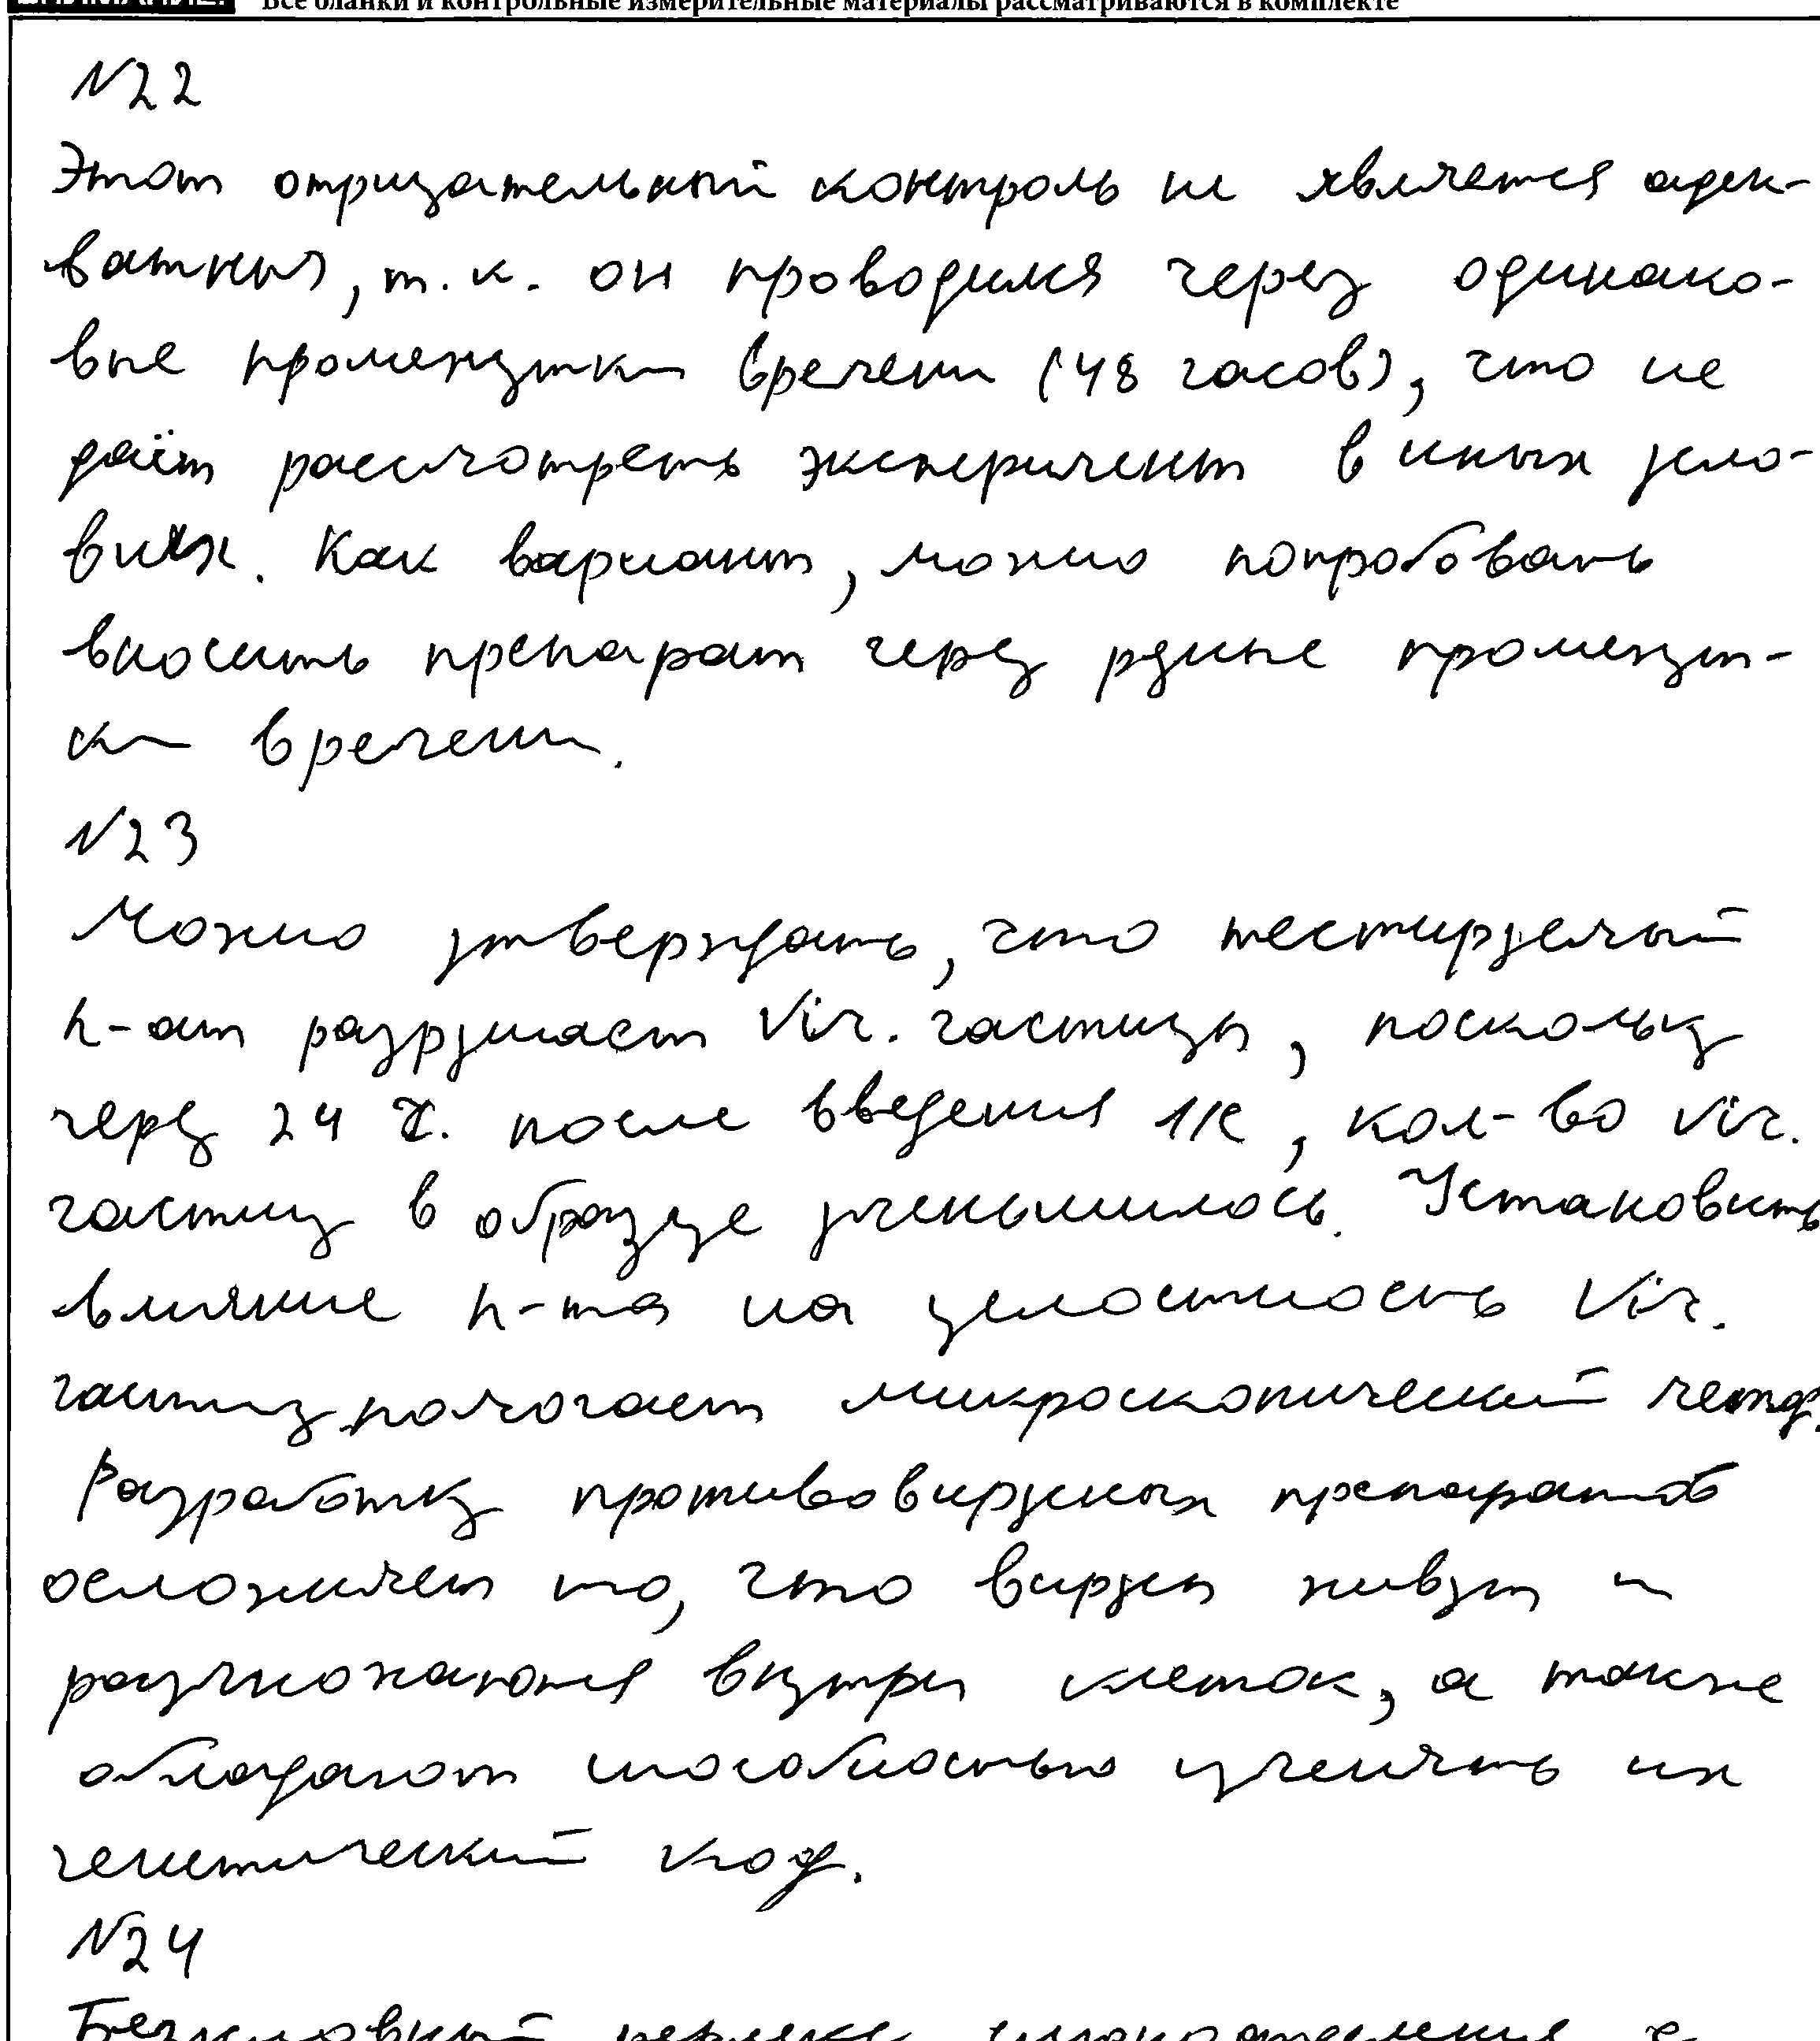 Все бланки и контрольные измерительные материалы рассматриваются в комплекте
N22
Этот отрицательный контроль не является адек-
ватным, т.к. он проводился через одинако-
вые промежутки времени (48 часов), что не
даёт рассмотреть эксперимент в иных усло-
виях. Как вариант, можно попробовать
вносить препарат через разные промежут-
ки времени.
N23
Можно утверждать, что тестируемый
п-ат разрушает Vir. частицы, поскольку
через 24 ч. после введения 1/2, кол-во Vir.
частиц в образце уменьшилось. Установить
влияние п-та на целостность Vir.
частиц помогает микроскопический метод.
Разработку противовирусных препаратов
осложняет то, что вирусы живут и
размножаются внутри клеток, а также
обладают способностью изменять их
генетический код.
N24
Безусловный рефлекс